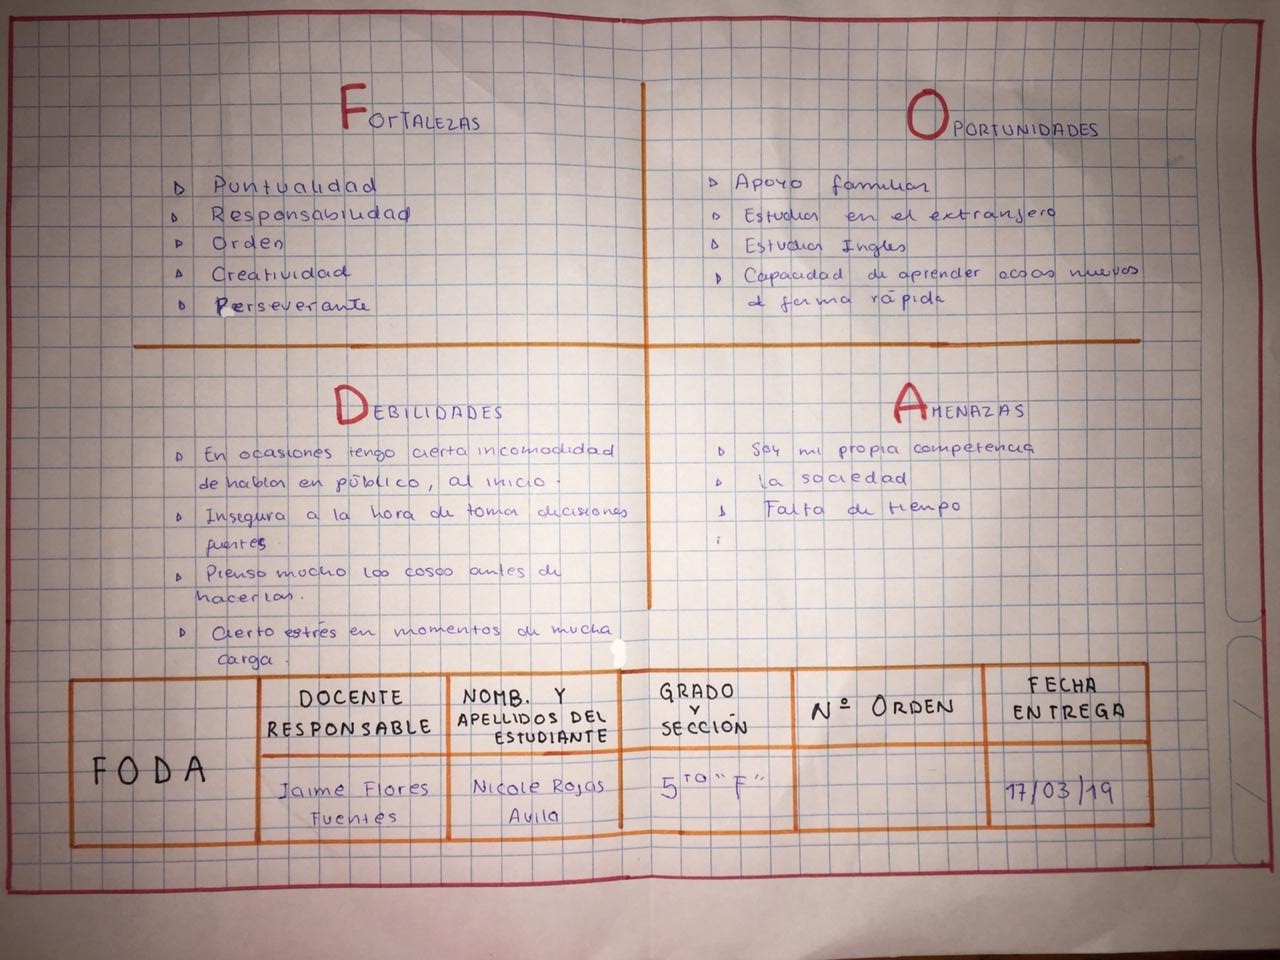 FORTALEZAS
Puntualidad
Responsabilidad
Orden
Creatividad
Perseverante
OPORTUNIDADES
Apoyo familiar
Estudiar en el extranjero
Estudiar Ingles
Capacidad de aprender cosas nuevas
de forma rápida
DEBILIDADES
En ocasiones tengo cierta incomodidad
de hablar en público, al inicio.
Insegura a la hora de tomar decisiones
fuertes.
Pienso mucho las cosas antes de
hacerlas.
Cierto estrés en momentos de mucha
carga.
AMENAZAS
Soy mi propia competencia
la sociedad
Falta de tiempo
FODA
DOCENTE
RESPONSABLE
Jaime Flores
Fuentes
NOMB. Y
APELLIDOS DEL
ESTUDIANTE
Nicole Rojas
Avila
GRADO
Y
SECCIÓN
5TO "F"
Nº ORDEN
FECHA
ENTREGA
17/03/19